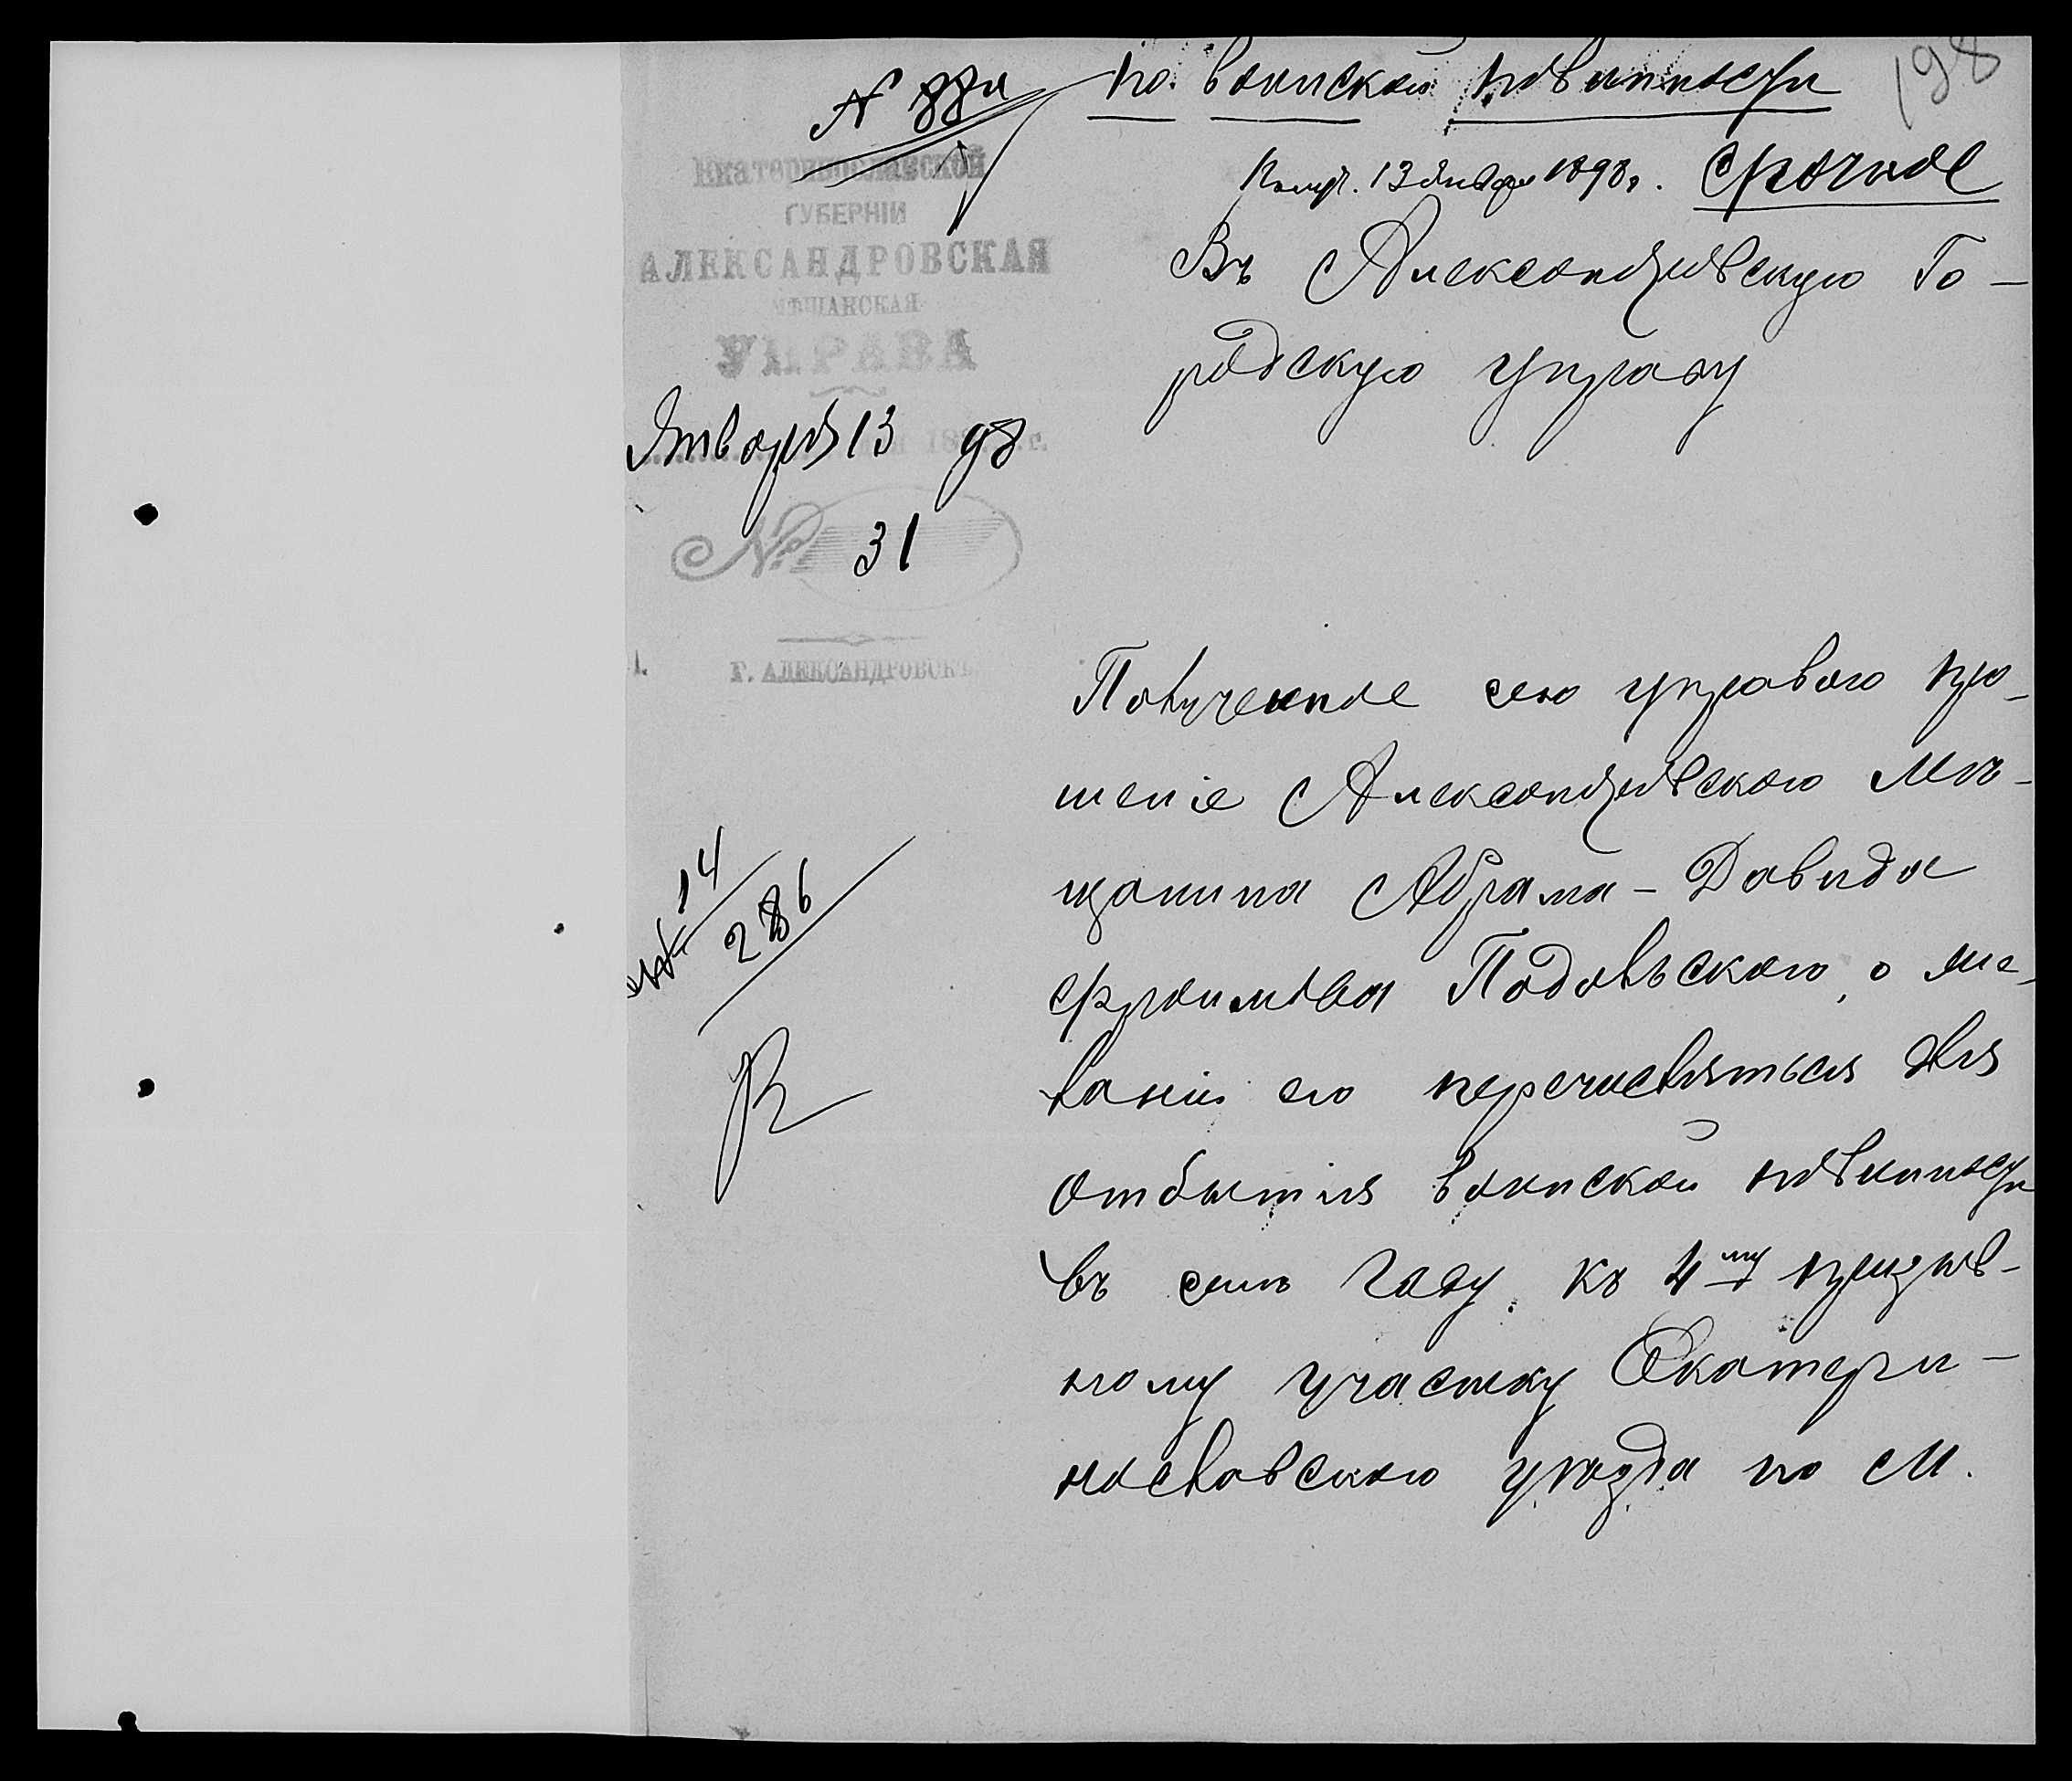 198
по воинской повинности
Получ. 13 января 1898 г. Срочное
Екатеринославской
ГУБЕРНІИ
АЛЕКСАНДРОВСКАЯ
МѢЩАНСКАЯ
УПРАВА
Января 13 98
№ 31
Г. АЛЕКСАНДРОВСКЪ
14
286
Въ Александровскую Го-
родскую управу
Полученное сею управою про-
шеніе Александровского мѣ-
щанина Абрама-Давида
Фроимова Подольского, о же-
ланіи его перечислиться для
отбытія воинской повинности
въ семъ году къ 4му призыв-
ному участку Екатери-
нославского уѣзда по М.